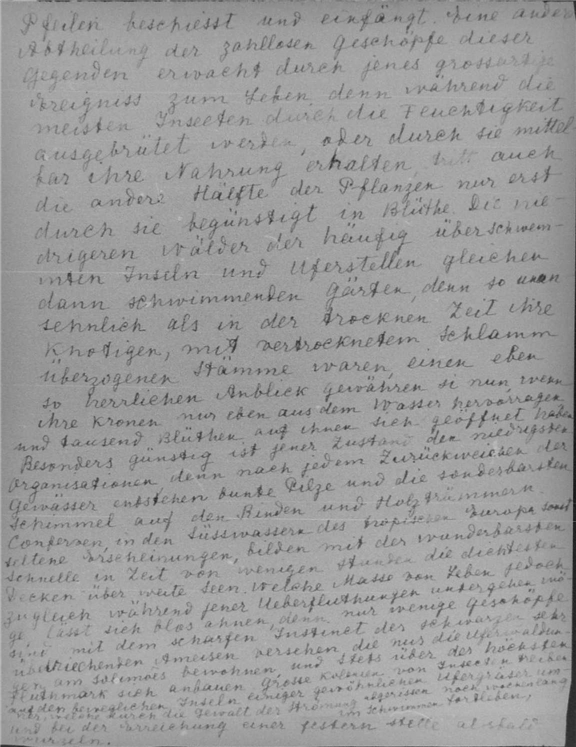 Pfeilen beschiesst und einfängt. Eine andere
Abtheilung der zahllosen Geschöpfe dieser
Gegenden erwacht durch jenes grossartige
Ereigniss zum Leben, denn während die
meisten Insecten durch die Feuchtigkeit
ausgebrütet werden, oder durch sie mittel-
bar ihre Nahrung erhalten, tritt auch
die andere Hälfte der Pflanzen nur erst
durch sie begünstigt in Blüthe. Die nie-
drigeren Wälder der häufig überschwem-
mten Inseln und Uferstellen gleichen
dann schwimmenden Gärten, denn so unan
sehnlich als in der trocknen Zeit ihre
Knotigen, mit vertrocknetem Schlamm
überzogenen Stämme waren, einen eben
so herrlichen Anblick gewähren si nun, wenn
ihre Kronen nur eben aus dem Wasser hervorragen
und tausend Blüthen auf ihnen sich geöffnet haben
Besonders günstig ist jener Zustand den niedrigsten
Organisationen, denn nach jedem Zurückweichen der
Gewässer entstehen bunte Pilze und die sonderbarsten
Schimmel auf den Rinden und Holztrümmern.
Conferven, in den Süsswassern des tropischen Europa sonst
seltene Erscheinungen, bilden mit der wunderbarsten
Schnelle in Zeit von wenigen Stunden die dichtesten
Decken über weite Seen. Welche Masse von Leben jedoch
zugleich während jener Ueberfluthungen untergehen mö-
ge, lässt sich blos ahnen, denn nur wenige Geschöpfe
sind mit dem scharfen Instinct der schwarzen sehr
übelriechenden Ameisen versehen, die nur die Uferwaldun-
gen am Solimoës bewohnen und stets über der höchsten
Fluthmark sich anbauen. Grosse Kolonien von Insecten treiben
auf den beweglichen Inseln einiger gewöhnlichen Ufergräser um-
her, welche durch die Gewalt der Strömung abgerissen noch wochenlang
im Schwimmen fortleben,
und bei der Erreichung einer festern Stelle alsbald
wurzeln.